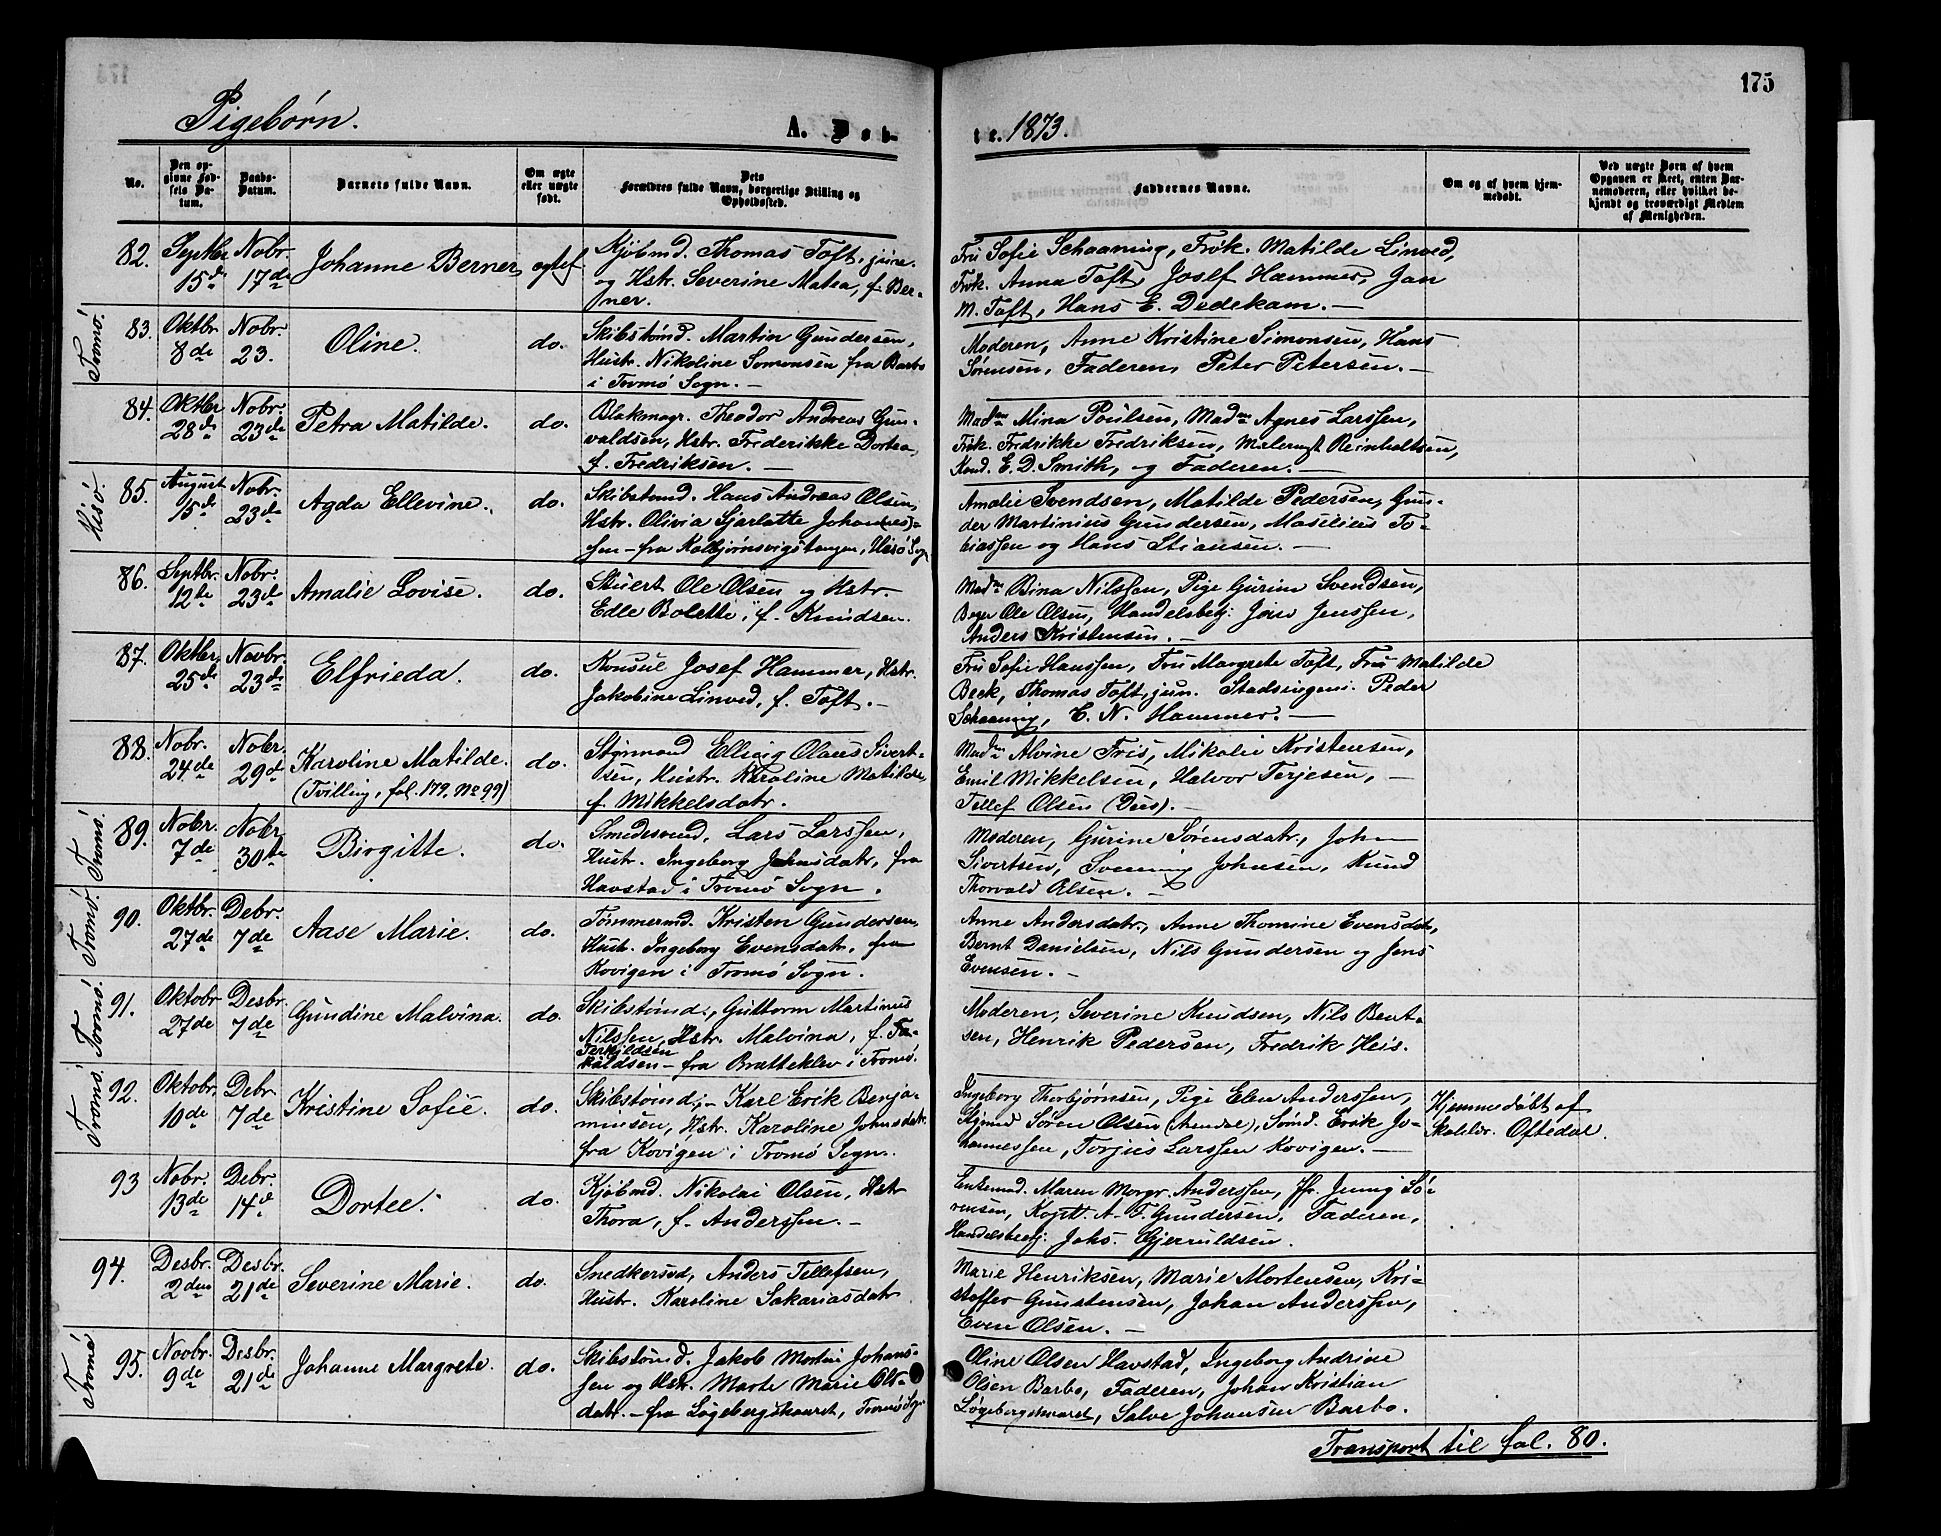 175
Pigebørn.
A. Døb-
te. 1873.
No.
Den op-
givne Fød-
sels Da-
tum.
Daabs-
Datum.
Barnets fulde Navn.
Om ægte
eller uægte
født.
Dets
Forældres fulde Navn, borgerlige Stilling og
Opholdssted.
Faddernes Navne.
Om og af hvem hjem-
medøbt.
Ved uægte Børn af hvem
Opgaven er skeet, enten Bar-
nemoderen, eller hvilket be-
kjendt og troværdigt Medlem
af Menigheden.
82. Septbr. 15de Nobr. 17de Johanne Berner ægtef.
Kjøbmd. Thomas Toft, junr.
og Hstr. Severine Matea, f. Ber-
ner.
Fru Sofie Schaaning, Frøk. Matilde Linved,
Frøk. Anna Toft, Josef Hammer, Jan
M. Toft, Hans E. Dedekam. —
Tromø. 83. Oktbr. 8de Nobr. 23. Oline. do.
Skibstømd. Martin Gundersen,
Hustr. Nikoline Somonsen fra Barbo
i Tromø Sogn. —
Moderen, Anne Kristine Simonsen, Hans
Sørensen, Faderen, Peter Petersen. —
84. Oktbr. 28de Nobr. 23de Petra Matilde. do.
Blokmagr. Theodor Andreas Gun-
valdsen, Hstr. Frederikke Dortea,
f. Fredriksen. —
Madm Mina Poulsen, Madm Agnes Larssen,
Frøk. Fredrikke Fredriksen, Malermst Reinholtsen,
Kand. E. D. Smith, og Faderen. —
Hisø. 85. August 15de Nobr. 23de Agda Ellevine. do.
Skibstømd. Hans Andreas Olsen,
Hstr. Olivia Sjarlotte Johan(nes)-
sen — fra Kolbjørnsvigstangen, Hisø Sogn
Amalie Svendsen, Matilde Pedersen, Gun-
der Martinius Gundersen, Masilius To-
biassen og Hans Stiansen. —
86. Septbr. 12te Nobr. 23de Amalie Lovise. do.
Stuert Ole Olsen og Hstr.
Edle Bolette, f. Knudsen.
Madm Bina Nilssen, Pige Gurine Svendsen,
Bager Ole Olsen, Handelsbetj: Jens Jenssen,
Anders Kristensen. —
87. Oktbr. 25de Novbr. 23de Elfrieda. do.
Konsul Josef Hammer, Hstr.
Jakobine Linved, f. Toft. —
Fru Sofie Hanssen, Fru Margrete Toft, Fru Matilde
Beck, Thomas Toft, jun. Stadsingeni. Peder
Schaaning, E. N. Hammer. —
88. Nobr. 24de Nobr. 29de Karoline Matilde.
(Tvilling, fol. 179, No 99) do.
Styrmand Elling Olaus Sivert-
sen, Hustr. Karoline Matilde,
f. Mikkelsdatr.
Madm Alvine Friis, Mikalie Kristensen,
Emil Mikkelsen, Halvor Terjesen, —
Tellef Olsen (Dues). —
Tromø. 89. Nobr. 7de Nobr. 30te Birgitte. do.
Smedesvend, Lars Larssen,
Hustr. Ingeborg Johnsdatr, fra
Havstad i Tromø Sogn.
Moderen, Gurine Sørensdatr., John
Sivertsen, Svenning Johnsen, Knud
Thorvald Olsen. —
Tromø. 90. Oktbr. 27de Debr. 7de Aase Marie. do.
Tømmermd. Kristen Gundersen,
Hustr. Ingeborg Evensdatr. fra
Kovigen i Tromø Sogn.
Anne Andersdatr., Anne Thomine Evensdatr,
Bernt Danielsen, Nils Gundersen og Jens
Evensen. —
Tromø. 91. Oktobr 27de Desbr. 7de Gundine Malvina. do.
Skibstømd., Guttorm Martinus
Nilssen, Hstr. Malvina, f. Ta-
Terkildsen
kaldsen — fra Bratteklev i Tromø.
Moderen, Severine Knudsen, Nils Bent-
sen, Henrik Pedersen, Fredrik Heis.
Tromø. 92. Oktobr. 10de Debr. 7de Kristine Sofie. do.
Skibstømd. — Karl Erik Benja-
minsen, Hstr. Karoline Johnsdatr.
fra Kovigen i Tromø Sogn.
Ingeborg Thorbjørnsen, Pige Elen Anderssen,
Stjrmd Søren Olsen (Arendal), Sømd. Erik Jo-
hannessen, Torjus Larssen Kovigen. —
Hjemmedøbt af
Skolelr. Oftedal.
93 Nobr. 13de Debr. 14de Dortee. do.
Kjøbmd. Nikolai Olsen, Hstr
Thora, f. Anderssen. —
Enkemad. Maren Margr. Anderssen, Jfr. Jenny Sø-
rensen, Kaptl. A. T. Gundersen, Faderen,
Handelsbetj: Johs. Gjeruldsen.
94. Desbr. 2den Desbr. 21de Severine Marie. do.
Snedkersvd, Anders Tellefsen,
Hustr. Karoline Sakariasdatr
Marie Henriksen, Marie Mortensen, Kri-
stoffer Gunstensen, Johan Anderssen,
Even Olsen. —
Tromø 95. Novbr. 9de Desbr. 21de Johanne Margrete. do.
Skibstømd. Jakob Martin Johans-
sen og Hstr. Marte Marie Ols-
datr. — fra Løgebergskaaret, Tromø Sogn
Oline Olsen Havstad, Ingeborg Andrine
Olsen Barbo, Faderen, Johan Kristian
Løgebergskaaret, Salve Johansen Barbo.
Transport til fol. 80.